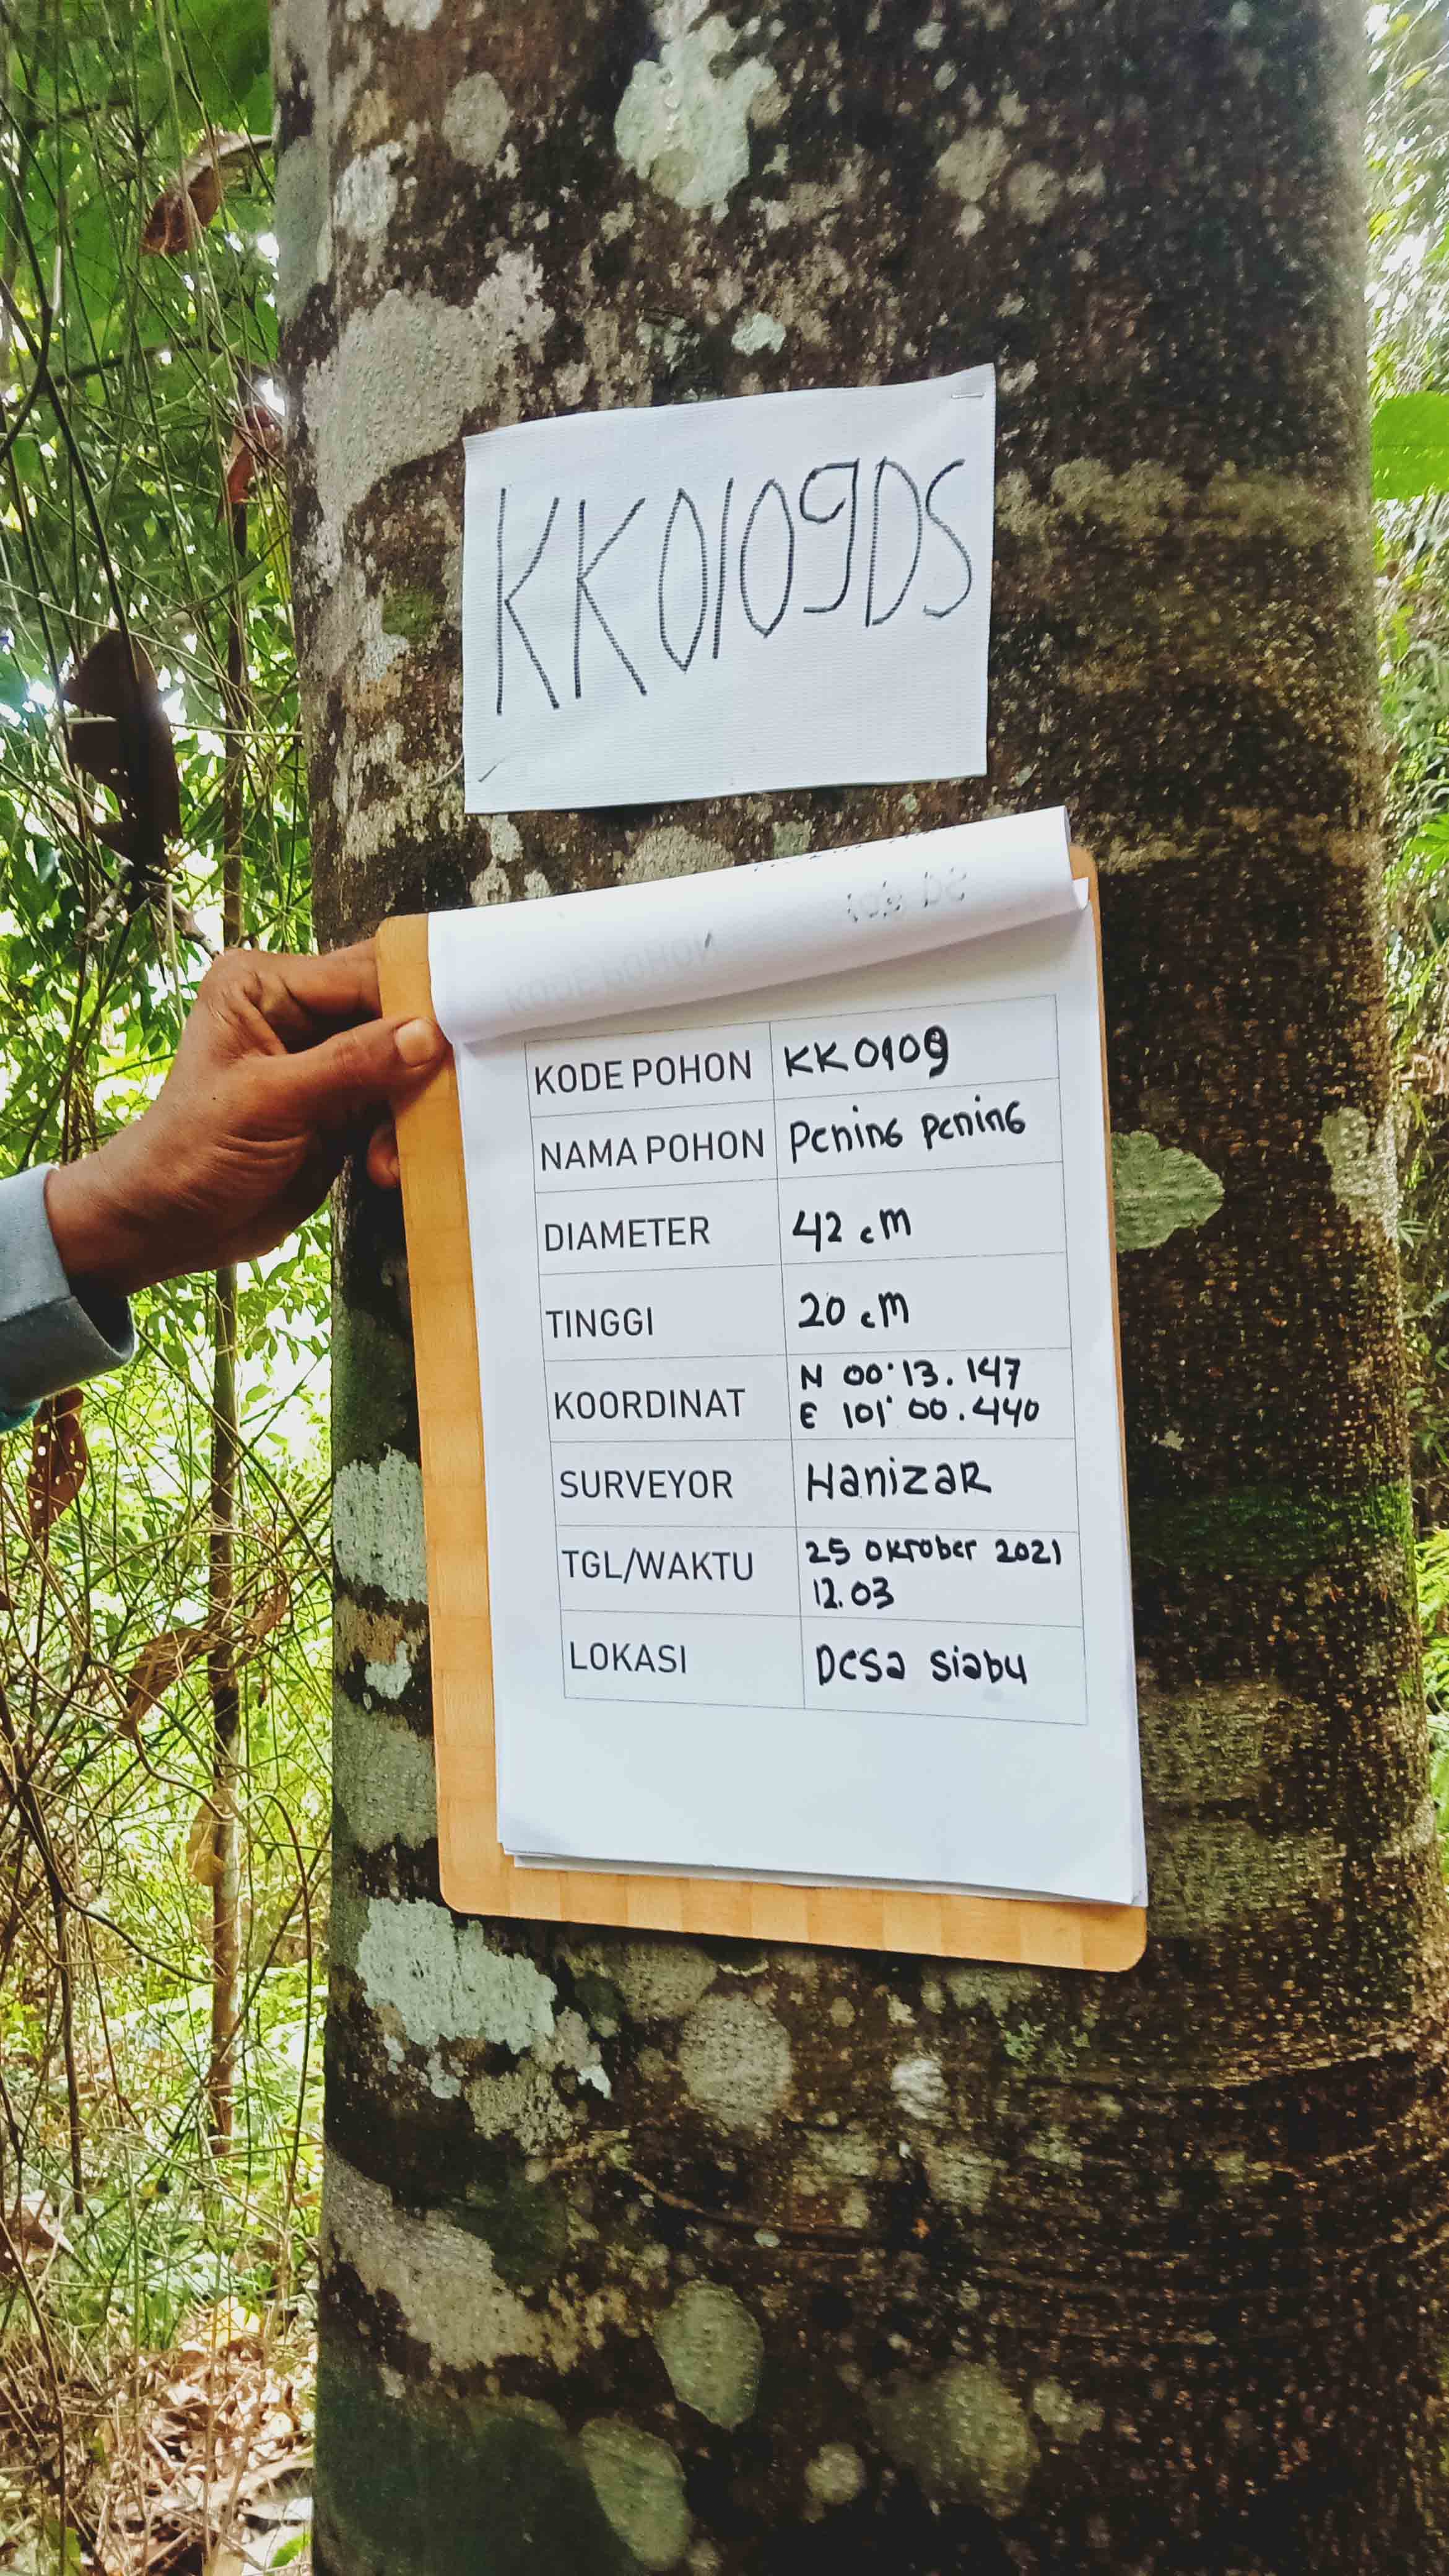 KK0109DS
KODE POHON KK0109
NAMA POHON Pening pening
DIAMETER 42 cm
TINGGI 20 cm
KOORDINAT N 00°13.147
E 101° 00.440
SURVEYOR HanizaR
TGL/WAKTU 25 oktober 2021
12.03
LOKASI Desa siabu